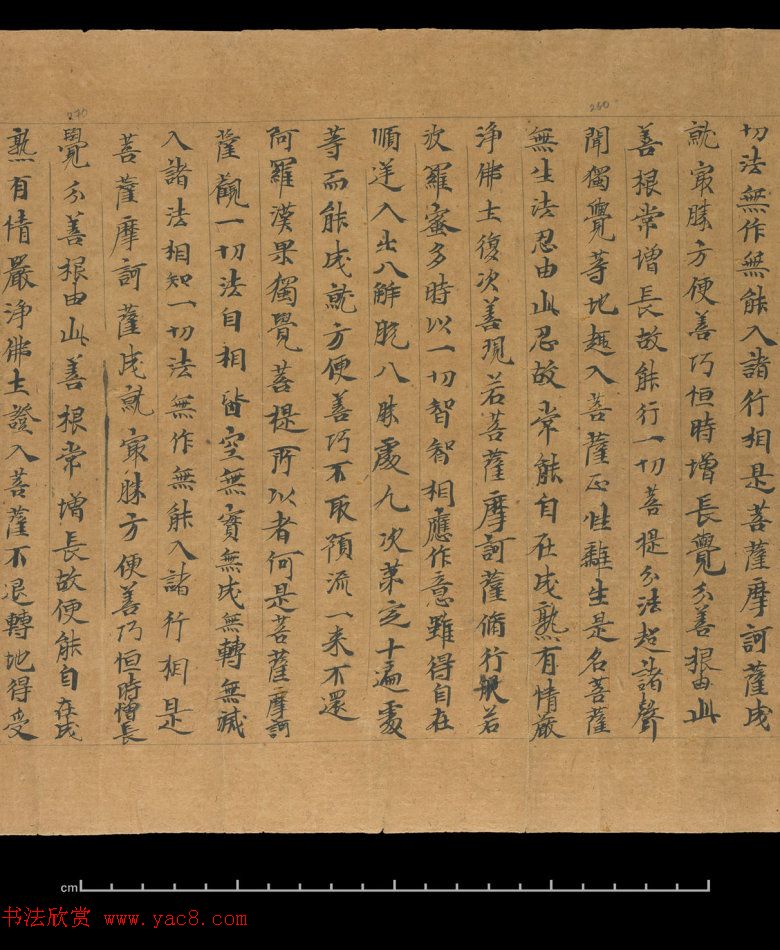 切法無作無能入諸行相是菩薩摩訶薩成
就㝡勝方便善巧恒時增長覺分善根由此
善根常增長故能行一切菩提分法超諸聲
聞獨覺等地趣入菩薩正性離生是名菩薩
無生法忍由此忍故常能自在成熟有情嚴
淨佛土復次善現若菩薩摩訶薩脩行般若
波羅蜜多時以一切智智相應作意雖得自在
順逆入出八解脫八勝處九次第定十遍處
等而能成就方便善巧不取預流一来不還
阿羅漢果獨覺菩提所以者何是菩薩摩訶
薩觀一切法自相皆空無實無成無轉無滅
入諸法相知一切法無作無能入諸行相是
菩薩摩訶薩成就㝡勝方便善巧恒時增長
覺分善根由此善根常增長故便能自在成
熟有情嚴淨佛土證入菩薩不退轉地得受
260
270
cm
书法欣赏 www.yac8.com